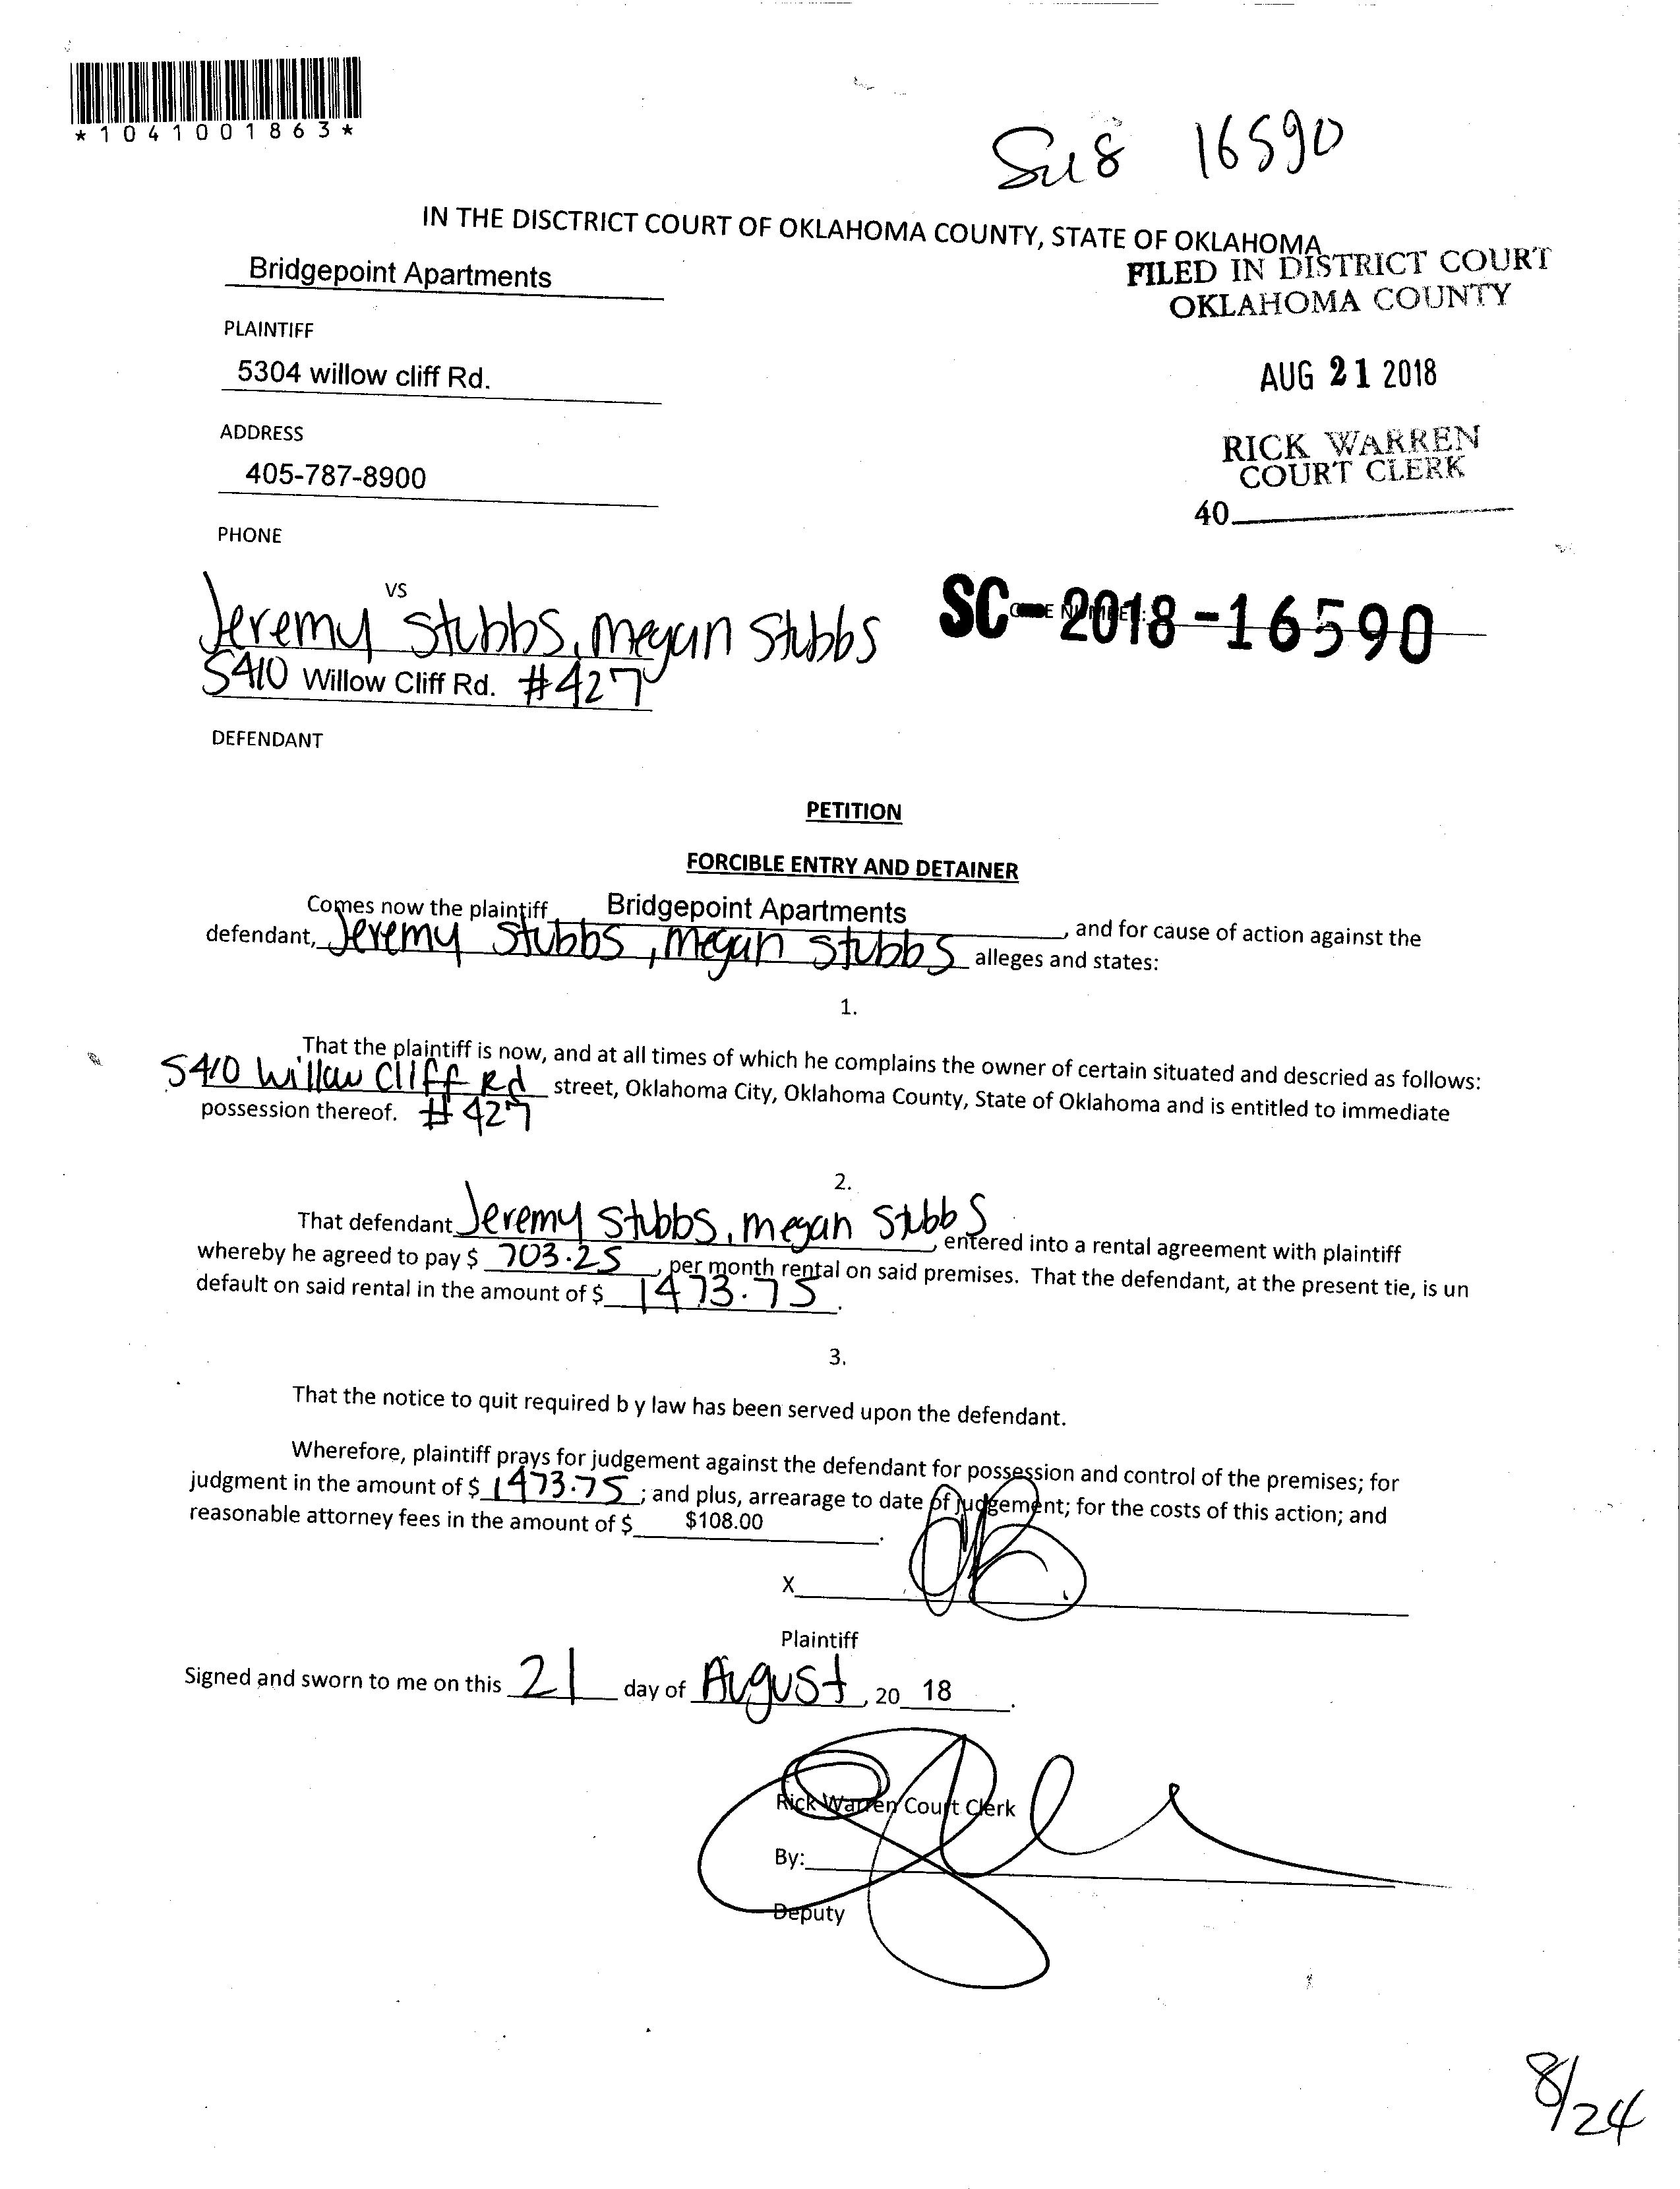 *1041001863*
Su8 16590
IN THE DISCTRICT COURT OF OKLAHOMA COUNTY, STATE OF OKLAHOMA
Bridgepoint Apartments
PLAINTIFF
5304 willow cliff Rd.
ADDRESS
405-787-8900
PHONE
FILED IN DISTRICT COURT
OKLAHOMA COUNTY
AUG 21 2018
RICK WARREN
COURT CLERK
40
VS
Jeremy Stubbs, Megan Stubbs
5410 Willow Cliff Rd. #427
DEFENDANT
SC-2018-16590
PETITION
FORCIBLE ENTRY AND DETAINER
Comes now the plaintiff Bridgepoint Apartments, and for cause of action against the
defendant, Jeremy Stubbs, Megan Stubbs alleges and states:
1.
That the plaintiff is now, and at all times of which he complains the owner of certain situated and descried as follows:
5410 Willow Cliff Rd street, Oklahoma City, Oklahoma County, State of Oklahoma and is entitled to immediate
possession thereof. #427
2.
That defendant Jeremy Stubbs, Megan Stubbs, entered into a rental agreement with plaintiff
whereby he agreed to pay $ 703.25, per month rental on said premises. That the defendant, at the present tie, is un
default on said rental in the amount of $ 1473.75.
3.
That the notice to quit required b y law has been served upon the defendant.
Wherefore, plaintiff prays for judgement against the defendant for possession and control of the premises; for
judgment in the amount of $ 1473.75; and plus, arrearage to date of judgement; for the costs of this action; and
reasonable attorney fees in the amount of $ $108.00.
X
Plaintiff
Signed and sworn to me on this 21 day of August, 20 18.
Rick Warren Court Clerk
By:
Deputy
8/24